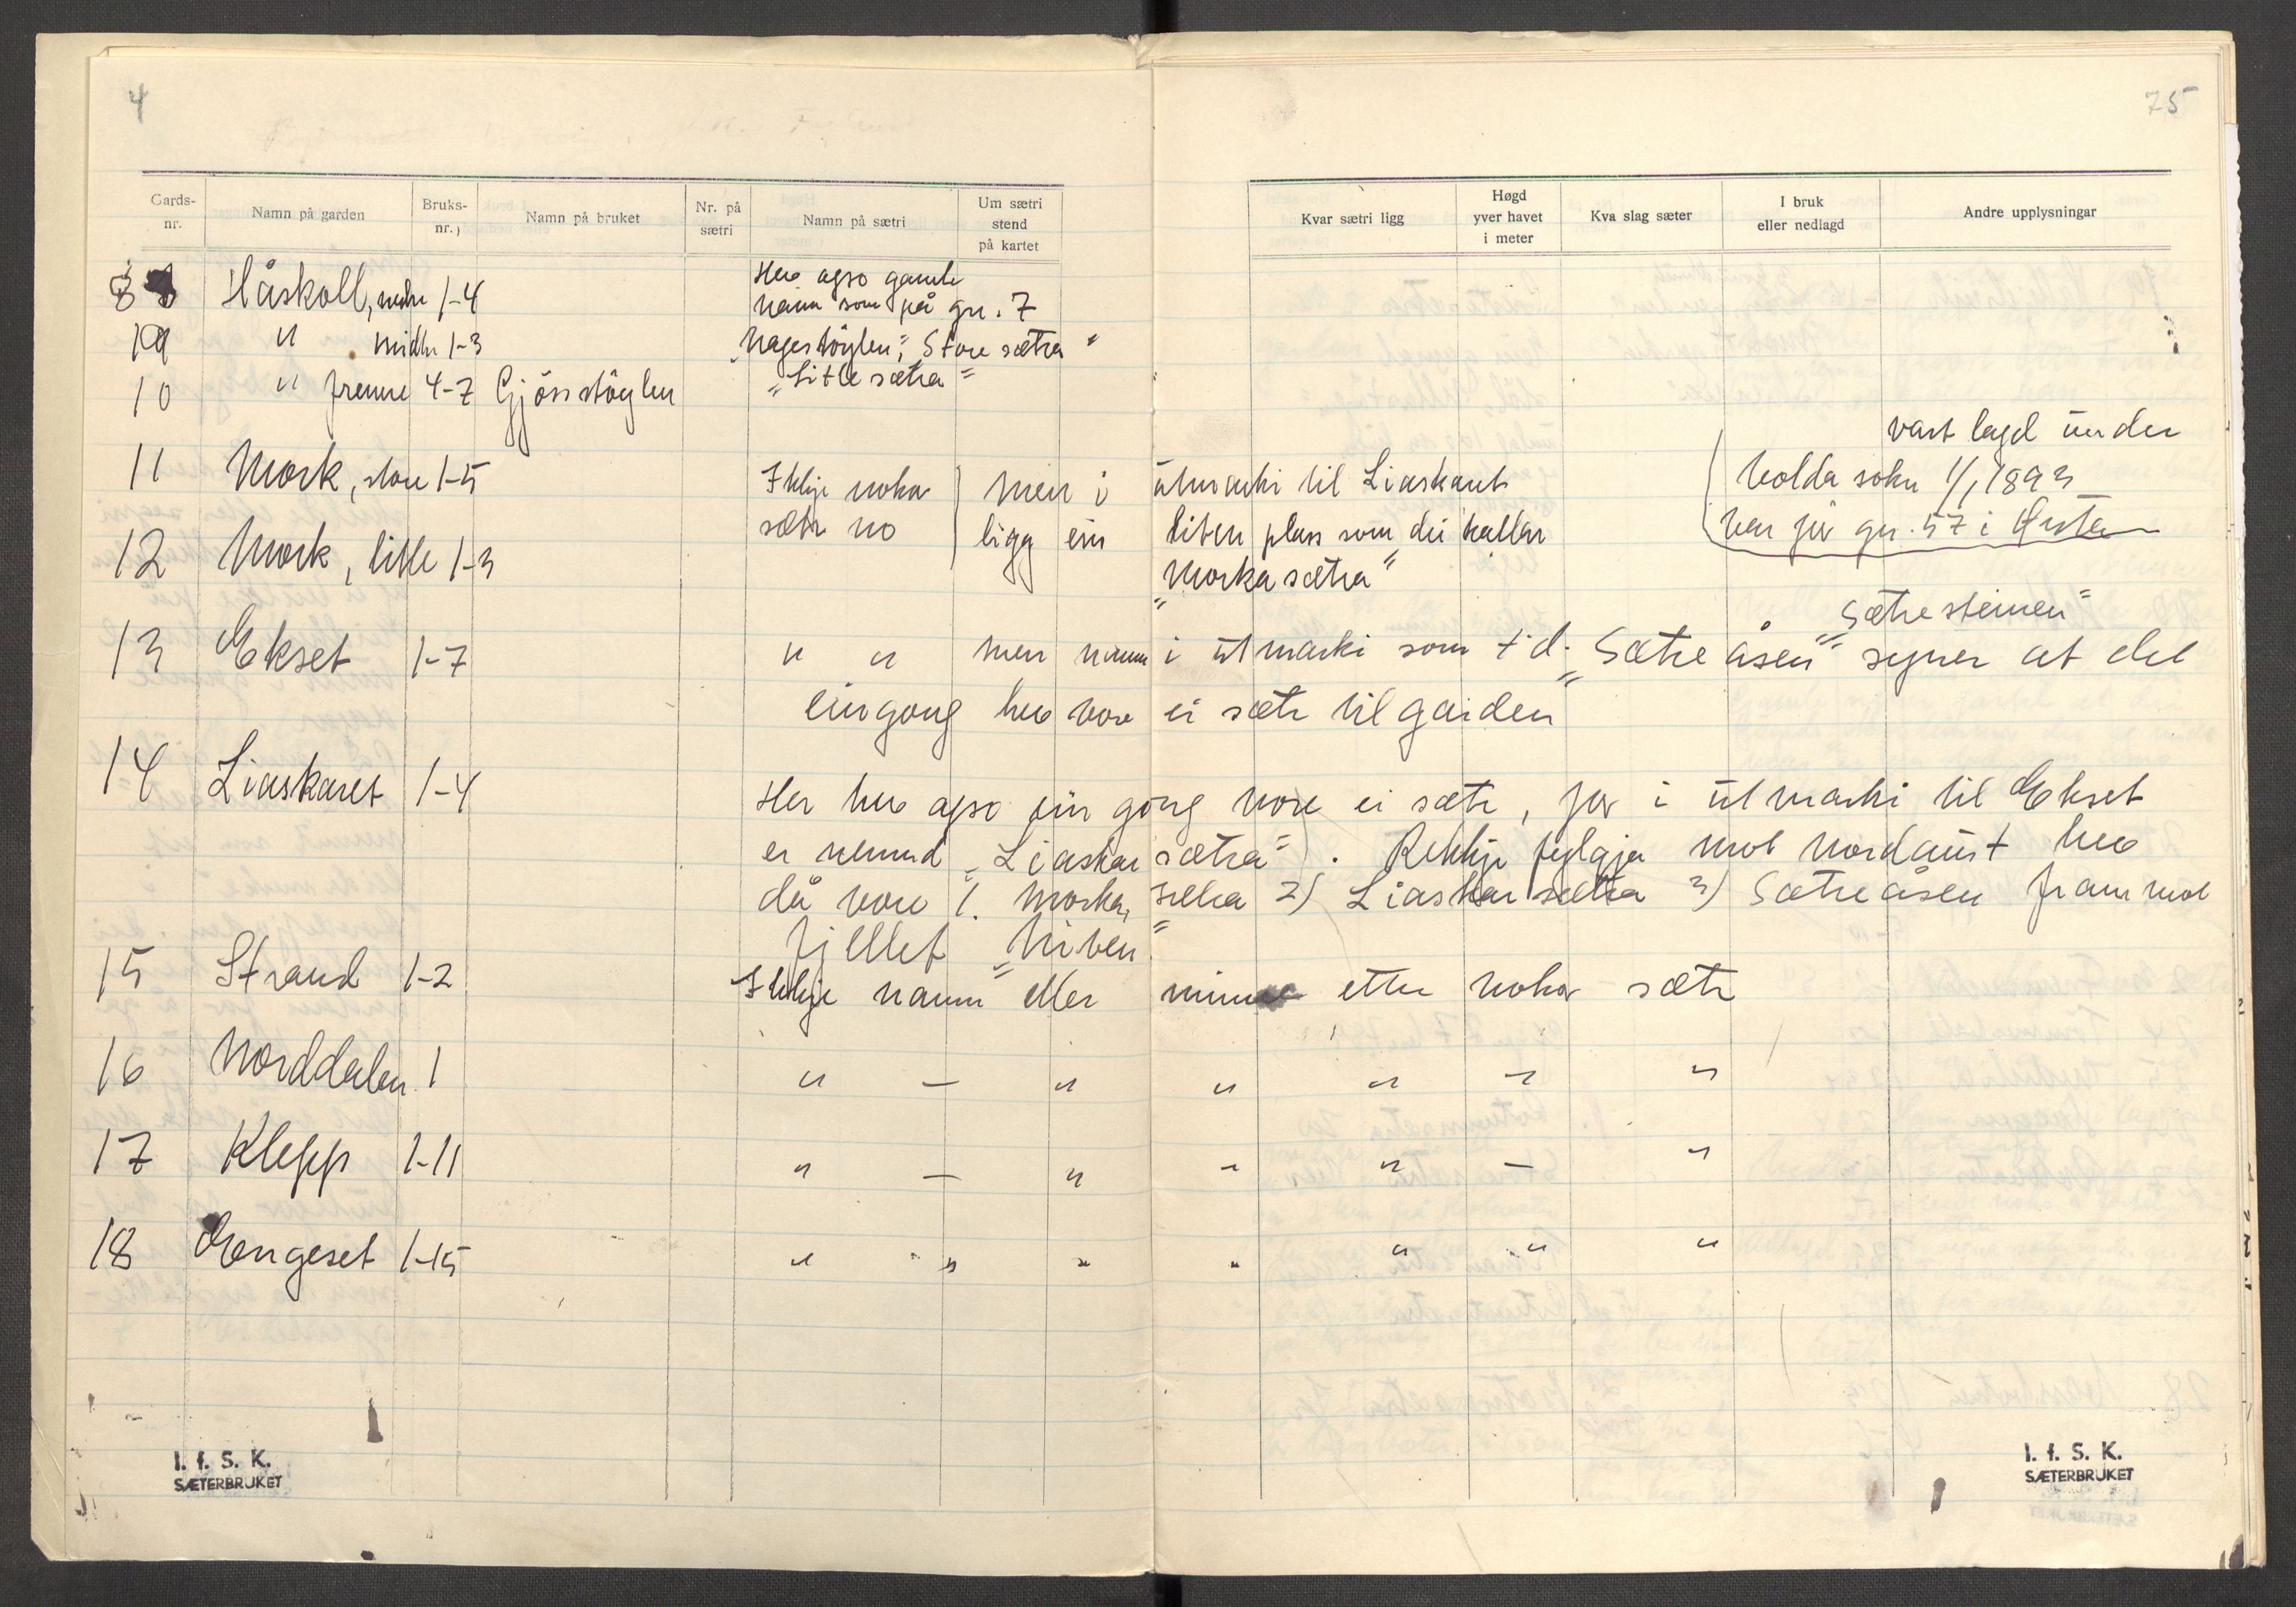 4
75
Gards-nr. Namn på garden Bruks-nr. Namn på bruket Nr. på sætri Namn på sætri Um sætri stend på kartet Kvar sætri ligg Høgd yver havet i meter Kva slag sæter I bruk eller nedlagd Andre upplysningar
8 Håskoll, nedre 1-4 Hev ogso gamle
namn som på gn. 7
9 " midtre 1-3 "Hagestöylen", "Store sætra"
10 " fremre 4-7 Gjösstöylen "Litle sætra"
vart lagd under
11 Mork, store 1-5 Ikkje noko men i utmarki til Liaskaret Volda sokn 1/1 1893
sætr no ligg ein liten plass som dei kallar var fyr gn. 57 i Ørsta
12 Mork, litle 1-3 "Morkasætra"
"Sætresteinen"
13 Ekset 1-7 " " men namn i utmarki som t.d. "Sætreåsen" syner at det
eingong hev vore ei sætr til garden
14 Liaskaret 1-4 Her hev ogso ein gong vore ei sætr, for i utmarki til Ekset
er nemnd "Liaskarsætra". Rekkje fylgja mot nordaust hev
då vore 1. Morkasætra 2) Liaskarsætra 3) Sætreåsen fram mot
fjellet "Niven"
15 Strand 1-2 Ikkje namn eller minne etter noko sætr
16 Norddalen 1 " — " " " " "
17 Klepp 1-11 " — " " " — "
18 Engeset 1-15 " " " " " " "
I. f. S. K.
SÆTERBRUKET
I. f. S. K.
SÆTERBRUKET